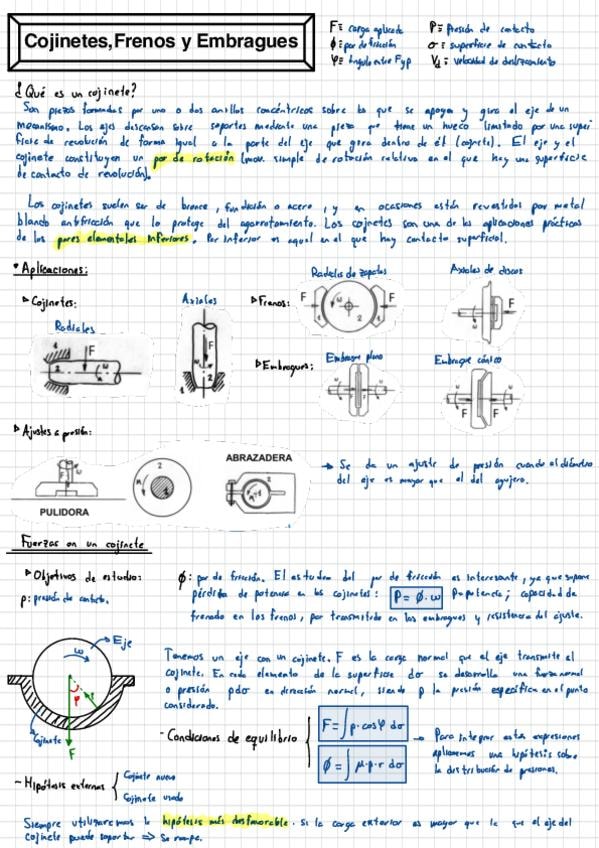 Cojinetes, Frenos y Embragues
F ≡ carga aplicada
P ≡ Presión de contacto
ϕ ≡ par de fricción
σ ≡ superficie de contacto
φ ≡ Ángulo entre F y p
Vd ≡ velocidad de deslizamiento
¿Qué es un cojinete?
Son piezas formadas por uno o dos anillos concéntricos sobre los que se apoya y gira el eje de un
mecanismo. Los ejes descansan sobre soportes mediante una pieza que tiene un hueco limitado por una superficie
de revolución de forma igual a la parte del eje que gira dentro de él (cojinete). El eje y el
cojinete constituyen un par de rotación (mov. simple de rotación relativa en el que hay una superficie
de contacto de revolución).
Los cojinetes suelen ser de bronce, fundición o acero, y en ocasiones están revestidos por metal
blando antifricción que lo protege del agarrotamiento. Los cojinetes son una de las aplicaciones prácticas
de los pares elementales inferiores. Par inferior es aquel en el que hay contacto superficial.
• Aplicaciones:
Cojinetes:
Radiales
Axiales
Frenos:
Radiales de zapatas
Axiales de discos
Embragues:
Embrague plano
Embrague cónico
Ajustes a presión:
PULIDORA
ABRAZADERA
→ Se da un ajuste de presión cuando el diámetro
del eje es mayor que el del agujero.
Fuerzas en un cojinete
Objetivos de estudio:
p: presión de contacto.
ϕ: par de fricción. El estudio del par de fricción es interesante, ya que supone
pérdida de potencia en los cojinetes: P = ϕ·ω P≡potencia; capacidad de
frenado en los frenos, par transmitido en los embragues y resistencia del ajuste.
Eje
ω
φ
F
Cojinete
Tenemos un eje con un cojinete. F es la carga normal que el eje transmite al
cojinete. En cada elemento de la superficie dσ se desarrolla una fuerza normal
o presión pdσ en dirección normal, siendo p la presión específica en el punto
considerado.
- Condiciones de equilibrio
F = ∫ p·cosφ dσ
ϕ = ∫ μ·p·r dσ
→ Para integrar estas expresiones
aplicaremos una hipótesis sobre
la distribución de presiones.
- Hipótesis externas
Cojinete nuevo
Cojinete usado
Siempre utilizaremos la hipótesis más desfavorable. Si la carga exterior es mayor que la que el eje del
cojinete puede soportar ⇒ Se rompe.